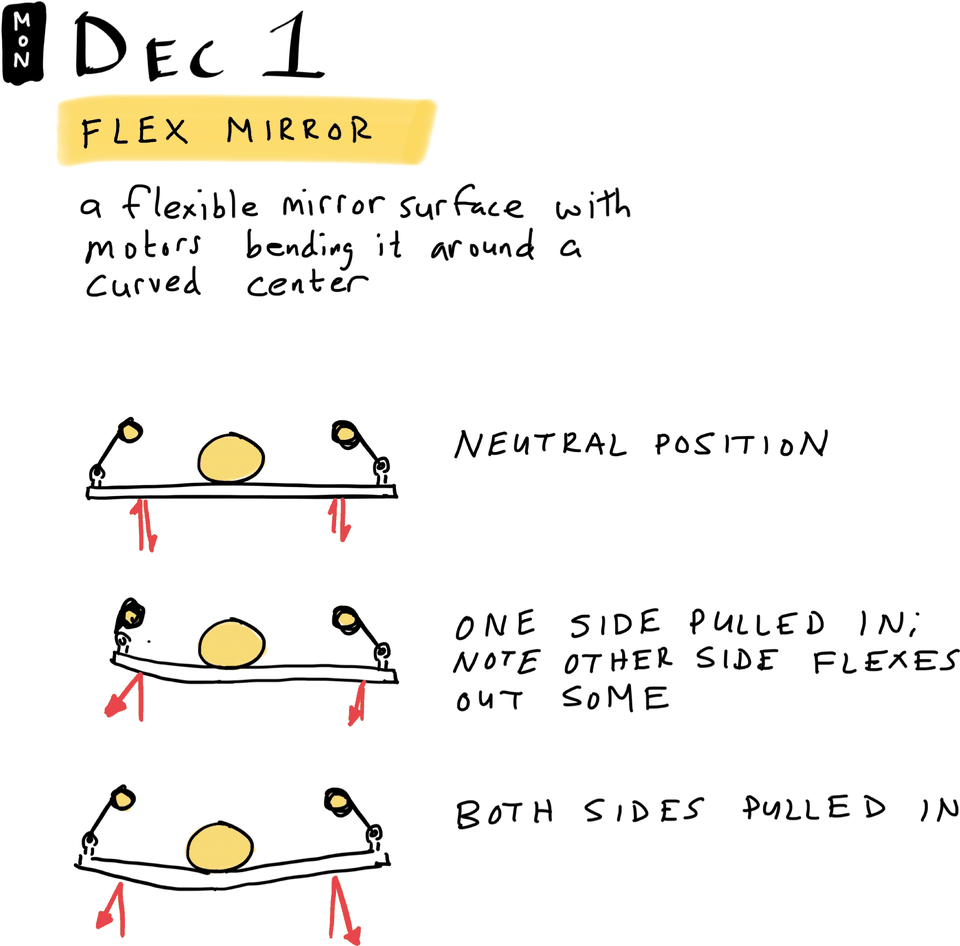 MON
DEC 1
FLEX MIRROR
a flexible mirror surface with
motors bending it around a
curved center
NEUTRAL POSITION
ONE SIDE PULLED IN;
NOTE OTHER SIDE FLEXES
OUT SOME
BOTH SIDES PULLED IN